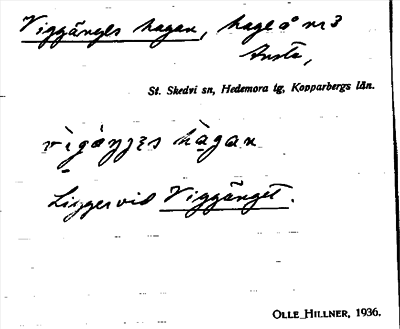 Viggängeshagan, hage å nr 3
Ansta,
St. Skedvi sn, Hedemora tg, Kopparbergs län.
Ligger vid Viggänget.
OLLE HILLNER, 1936.